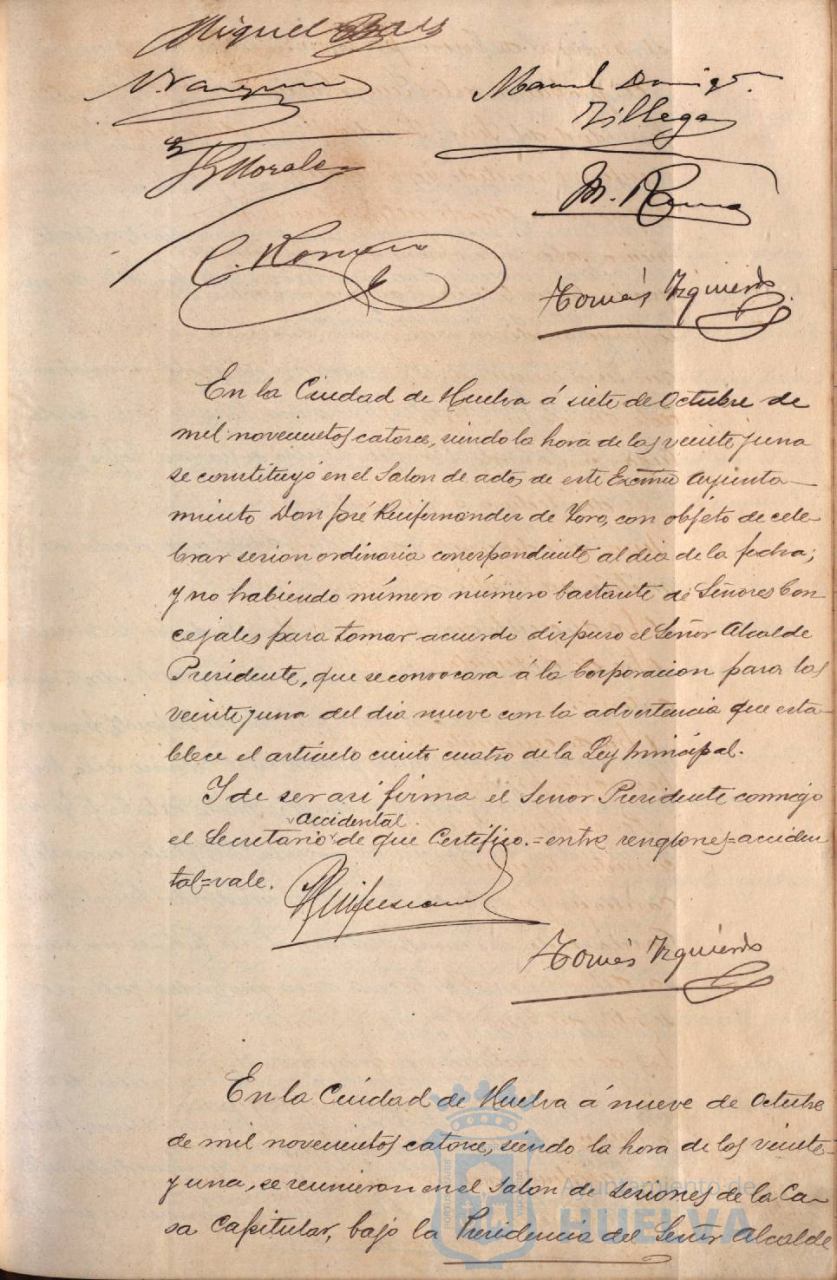 Miguel Báez
N. Vazquez
Manuel Domingo
Villegas
J. G. Morales
M. Romero
C. Romero
Tomás Izquierdo
En la Ciudad de Huelva á siete de Octubre de
mil novecientos catorce, siendo la hora de las veinte y una
se constituyó en el Salon de actos de este Excmo Ayunta-
miento Don José Ruifernandez de Toro, con objeto de cele-
brar sesion ordinaria correspondiente al dia de la fecha;
y no habiendo número número bastante de Señores Con-
cejales para tomar acuerdo dispuso el Señor Alcalde
Presidente, que se convocara á la Corporacion para las
veinte y una del dia nueve con la advertencia que esta-
blece el articulo ciento cuatro de la Ley Municipal.
Y de ser asi firma el Señor Presidente conmigo
accidental
el Secretario de que Certifico.=entre renglones=acciden
tal=vale.
Ruifernandez
Tomás Izquierdo
En la Ciudad de Huelva á nueve de Octubre
de mil novecientos catorce, siendo la hora de las veinte
y una, se reunieron en el Salon de Sesiones de la Ca-
sa Capitular, bajo la Presidencia del Señor Alcalde
Ayuntamiento de
HUELVA